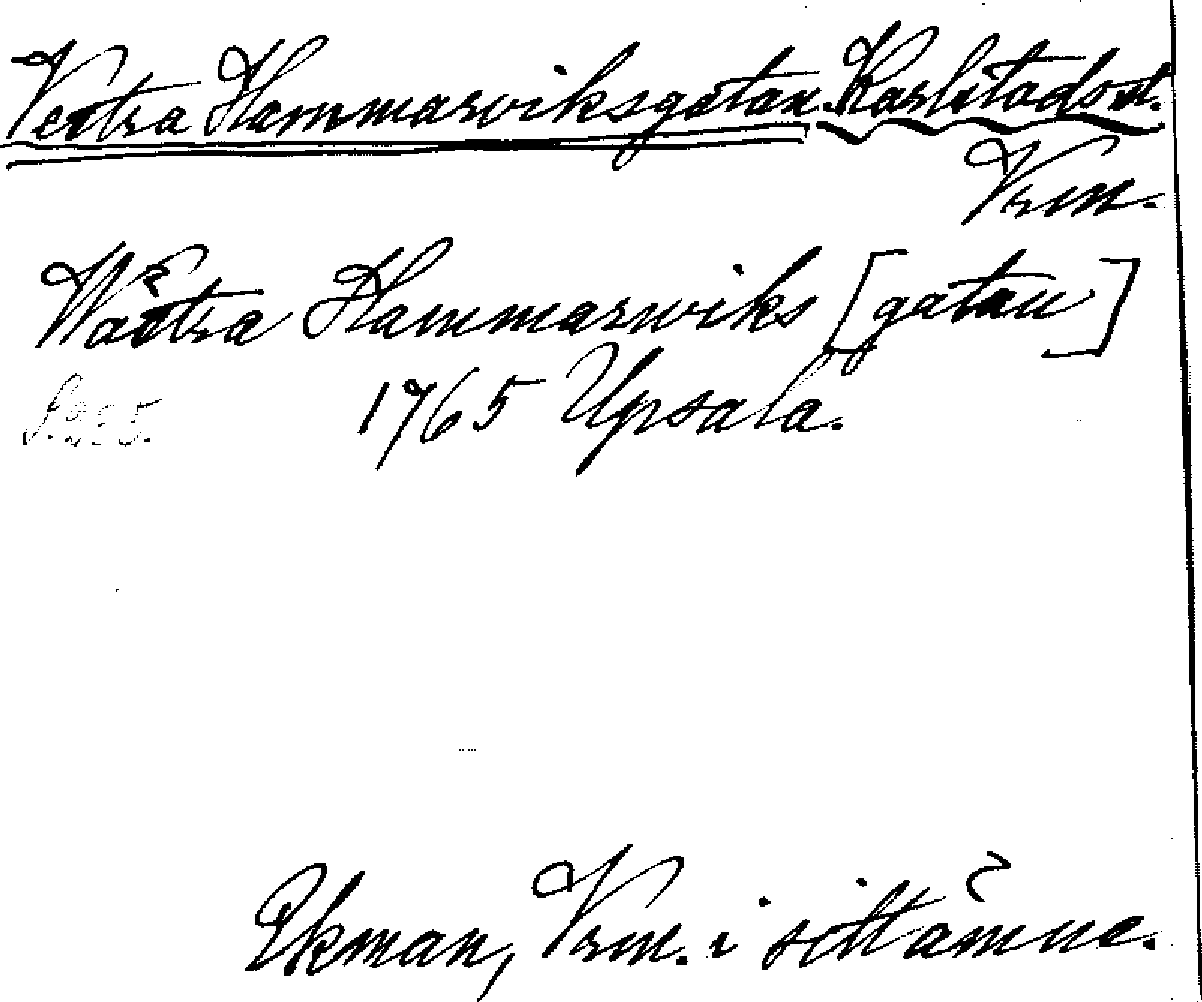 Vestra Hammarviksgatan. Karlstads st.
Vrm.
Wästra Hammarwiks [gatan]
S. 225. 1765 Upsala.
Ekman, Vrm. i sitt ämne.